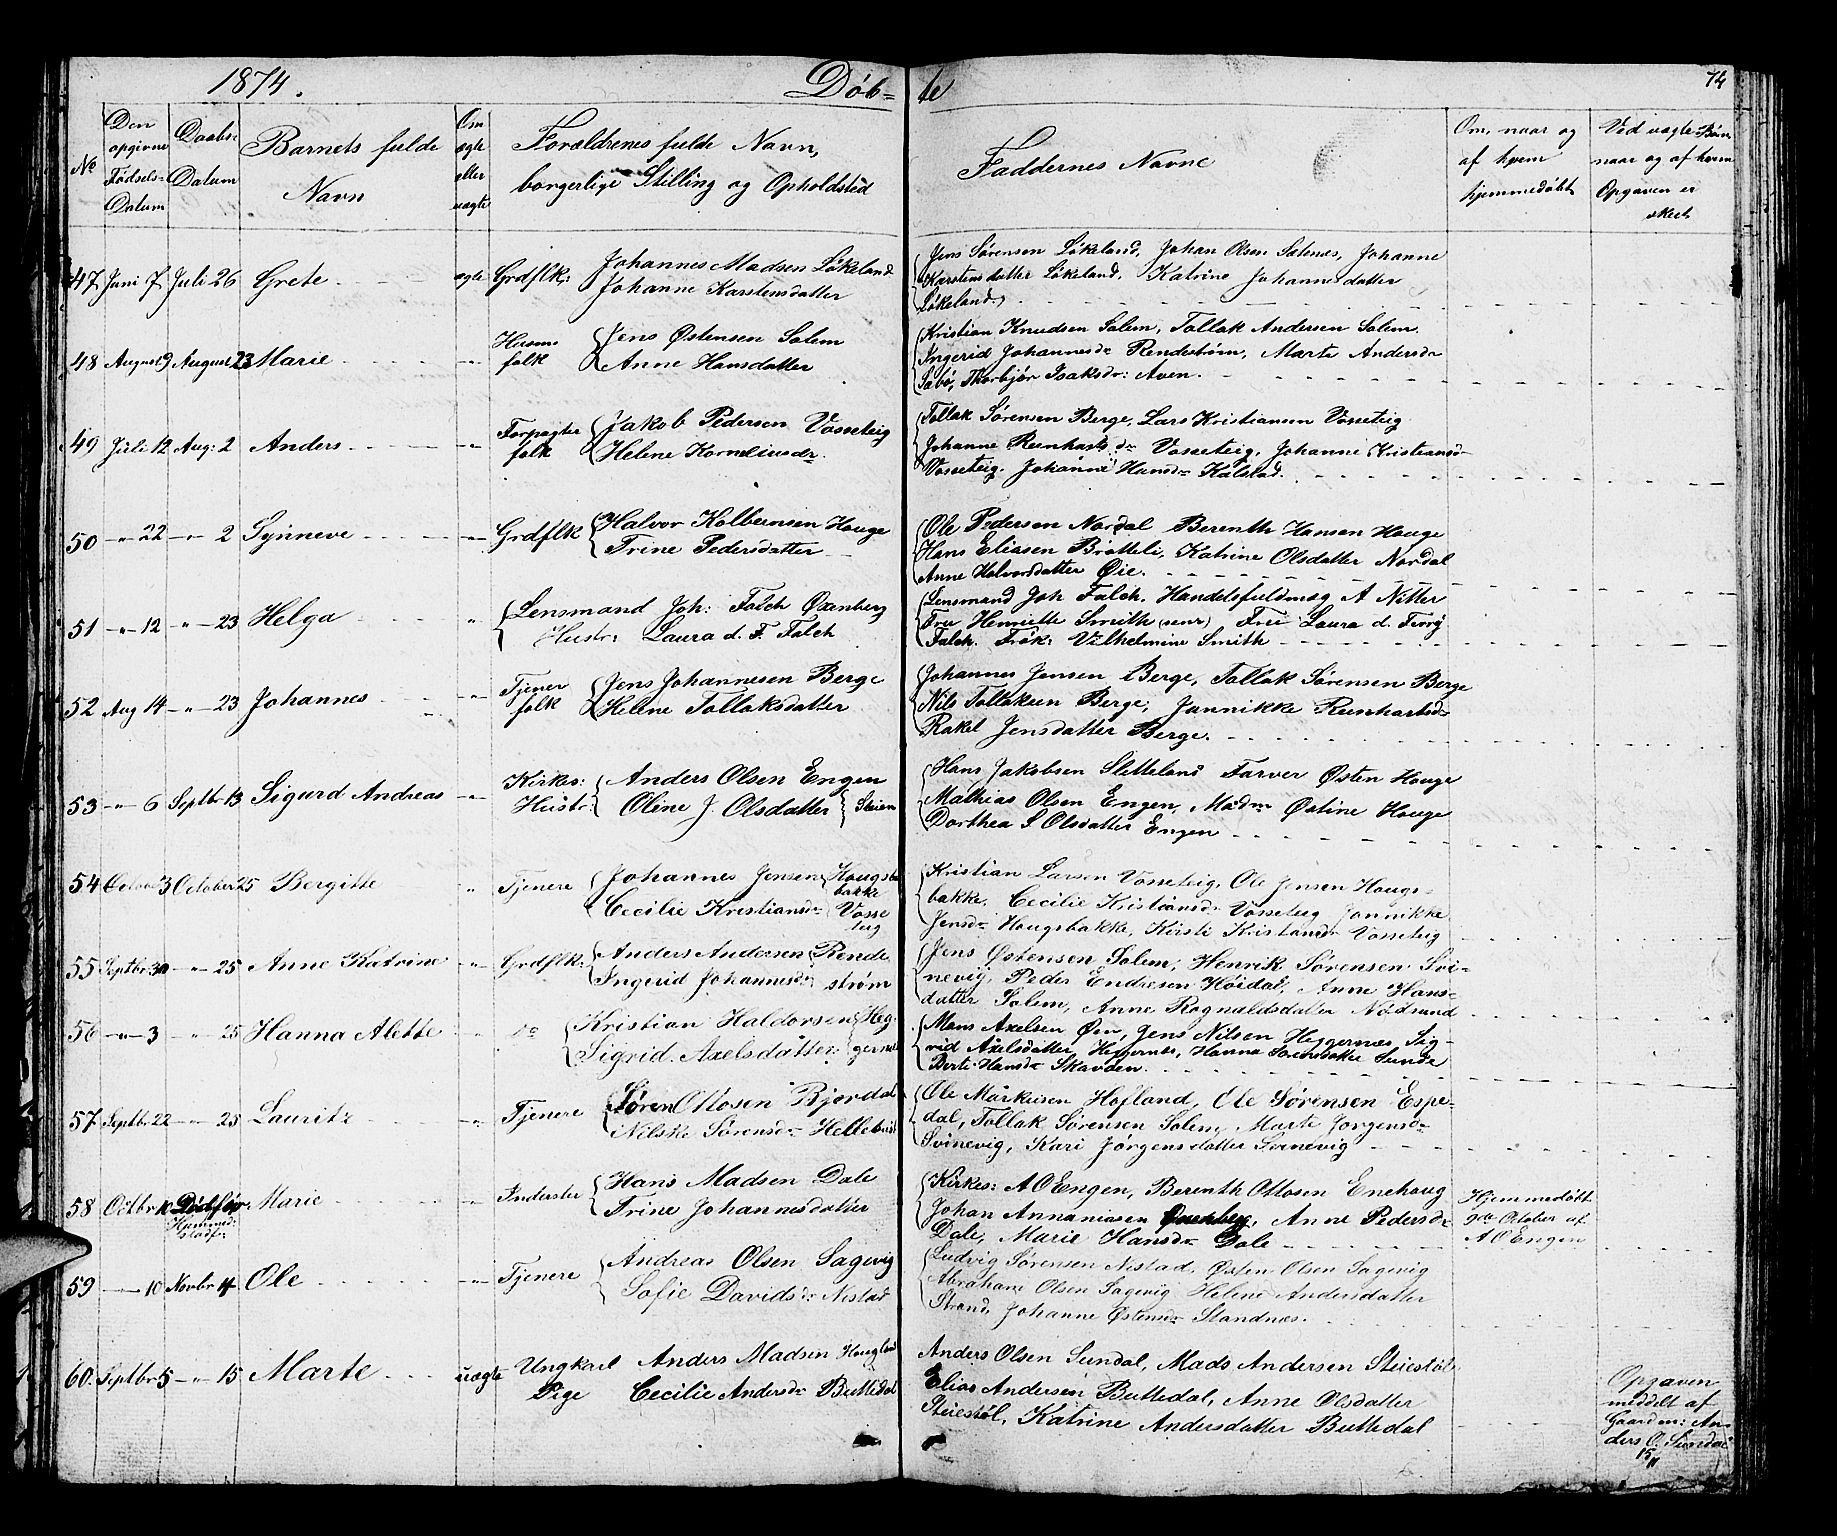 1874. Döb= te 74
No
Den opgivne Fødsels= Datum
Daabs= Datum
Barnets fulde Navn
Om ægte eller uægte
Forældrenes fulde Navn, borgerlige Stilling og Opholdsted
Faddernes Navne
Om, naar og af hvem hjemmedøbt
Ved uægte Børn naar og af hvem Opgaven er skeet
47 Juni 7 Juli 26 Grete ægte Grdflk: Johannes Madsen Løkeland
Johanne Karstensdatter
Jens Sørensen Løkeland, Johan Olsen Sætenes, Johanne
Karstensdatter Løkeland, Katrine Johannesdatter
Løkeland
48 August 9 August 23 Marie -"- Husmfolk Jens Østensen Solem
Anne Hansdatter
Kristian Knudsen Solem, Tollak Andersen Solem
Ingerid Johannesdr Rendestrøm, Marte Andersdr
Sæbø, Thorbjør Isaksdr: Aven.
49 Juli 12 Aug: 2 Anders -"- Forpagter folk Jakob Pedersen Vasseteig
Helene Korneliusdr.
Tollak Sørensen Berge, Lars Kristiansen Vasseteig
Johanne Reinhartsdr Vasseteig, Johanne Kristiansdr
Vasseteig. Johanne Hansdr Kalstad.
50 -"- 22 -"- 2 Synneve -"- Grdflk Halvor Kolbernsen Houge
Trine Pedersdatter
Ole Pedersen Nordal Berenth Hansen Houge
Hans Eliasen Bratteli, Katrine Olsdatter Nordal
Anne Halvorsdatter Øie.
51 -"- 12 -"- 23 Helga " Lensmand Joh: Falch Oxenberg
Hustr: Laura d. F. Falch
Lensmand Joh Falch. Handelsfuldmæg A Nitter
Fru Henriette Smith (senr) Fru Laura d. Ferry
Falch. Frøk: Vilhelmine Smith
52 Aug 14 -"- 23 Johannes -"- Tjenerfolk Jens Johannesen Berge
Helene Tollaksdatter
Johannes Jensen Berge, Tollak Sørensen Berge
Nils Tollaksen Berge, Jannikke Reinhartsdr
Rakel Jensdatter Berge.
53 -"- 6 Septbr 13 Sigurd Andreas -"- Kirkes: Anders Olsen Engen
Hustr: Oline J. Olsdatter Steien
Hans Jakobsen Sletteland Farver Østen Houge
Mathias Olsen Engen, Madm Østine Houge
Dorthea S Olsdatter Engen
54 October 3 October 25 Bergitte " Tjenere Johannes Jensen Hougsbakke
Cecilie Kristiansdr Vasseteig
Kristian Larsen Vasseteig, Ole Jensen Hougs=
bakke. Cecilie Kristiansdr Vasseteig Jannikke
Jensdr Hougsbakke, Kirsti Kristiansdr Vasseteig
55 Septbr 30 -"- 25 Anne Katrine -"- Grdflk: Anders Andersen Rende
Ingerid Johannesdr strøm
Jens Østensen Solem, Henrik Sørensen Svi=
nevig, Peder Endresen Höidal, Anne Hans=
datter Solem, Anne Rognaldsdatter Nødsund
56 -"- 3 -"- 25 Hanna Alette " do Kristian Haldorsen Heg
Sigrid Axelsdatter gernæs
Mons Axelsen Øen, Jens Nilsen Heggernes, Sig=
rid Axelsdatter, Heggernes, Hanna Sørensdatter Sunde
Berte Hansdr Skavden.
57 Septbr 22 -"- 25 Lauritz -"- Tjenere Søren Ottosen Bjordal
Nilske Sørensdr Hellebust
Ole Markusen Hofland, Ole Sørensen Espe=
dal, Tollak Sørensen Solem, Marte Jørgensdr
Svinevig, Kari Jørgensdatter Svinevig
58 Octbr Marie -"- Inderster Hans Madsen Dale
Trine Johannesdatter
Kirkes: A O Engen, Berenth Ottosen Enehoug
Johan Annaniasen Oxenberg, Anne Pedersdr
Dale, Marie Hansdr Dale
Hjemmedøbt
9de October af
A O Engen
59 -"- 10 Novbr 4 Ole -"- Tjenere Andreas Olsen Sagevig
Sofie Davidsdr Nistad
Ludvig Sørensen Nistad, Østen Olsen Sagevig
Abraham Olsen Sagevig Helene Andersdatter
Strand, Johanne Østensdr Standnæs.
60. Septbr 5 -"- 15 Marte uægte Ungkarl Anders Madsen Hougland
Pige Cecilie Andersdr Buttedal
Anders Olsen Sundal, Mads Andersen Steiestøl
Elias Andersen Buttedal, Anne Olsdatter
Steiestøl, Katrine Andersdatter Buttedal
Opgaven
meddelt af
Gaardm: An=
ders O. Sundal
15/11